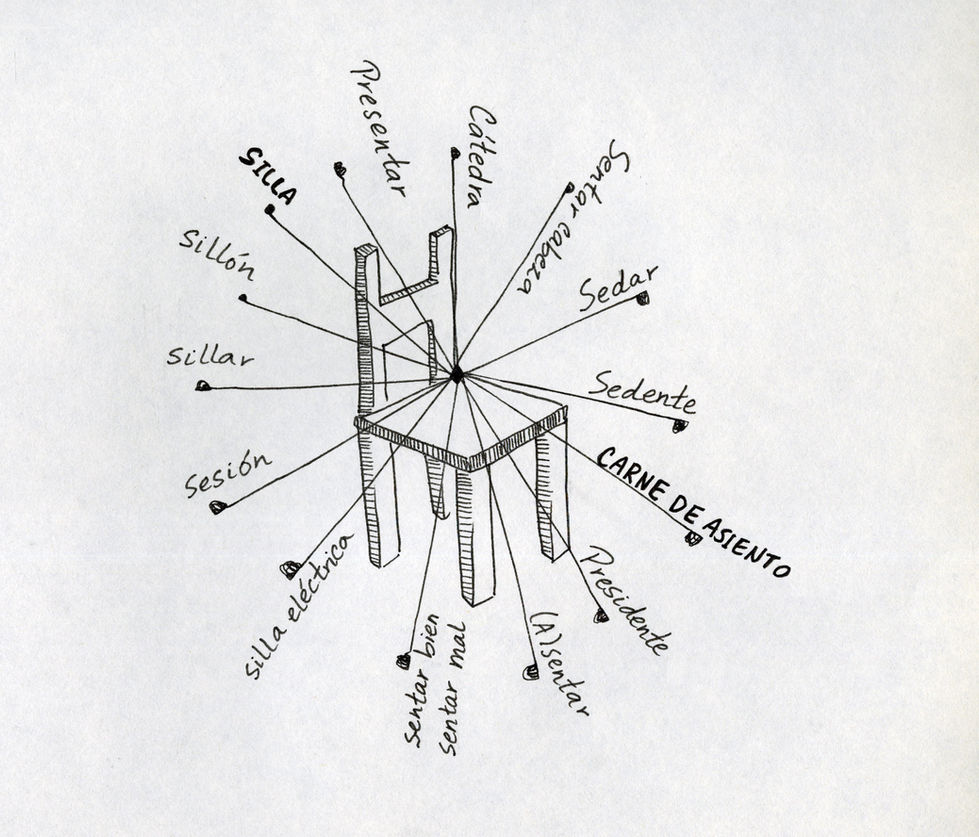 Presentar
Cátedra
Sentar cabeza
SILLA
Sillón
Sedar
Sillar
Sedente
Sesión
CARNE DE ASIENTO
Silla eléctrica
Presidente
sentar bien
sentar mal
(A)sentar